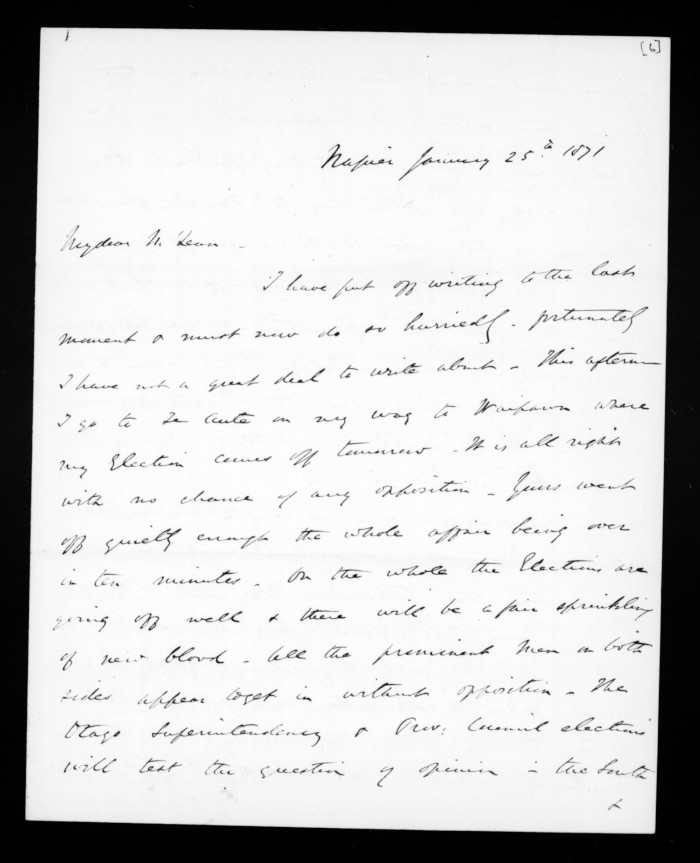 [6]
Napier January 25th 1871
My dear McLean -
I have put off writing to the last
moment & must now do so hurriedly - fortunately
I have not a great deal to write about - This afternoon
I go to Te Aute on my way to Waipawa where
my Election comes off tomorrow - It is all right
with no chance of any opposition - Yours went
off quietly enough the whole affair being over
in ten minutes - On the whole the Elections are
going off well & there will be a fair sprinkling
of new blood - All the prominent men on both
sides appear to get in without opposition - The
Otago Superintendency & Prov: Council elections
will test the question of opinion in the South
&